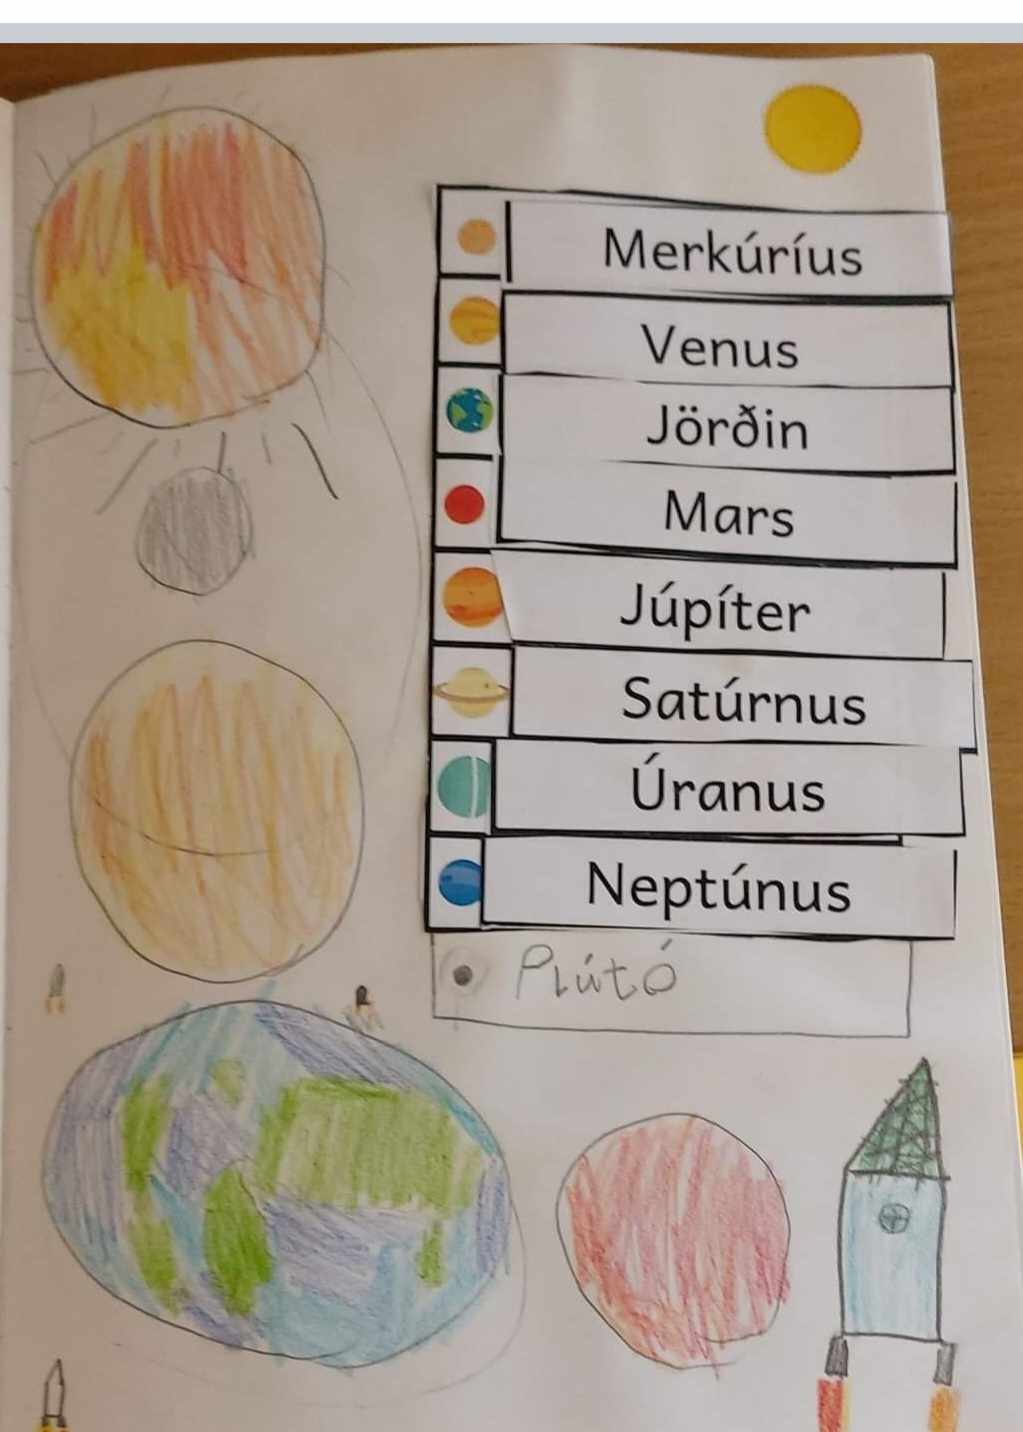 Merkúríus
Venus
Jörðin
Mars
Júpíter
Satúrnus
Úranus
Neptúnus
Plútó